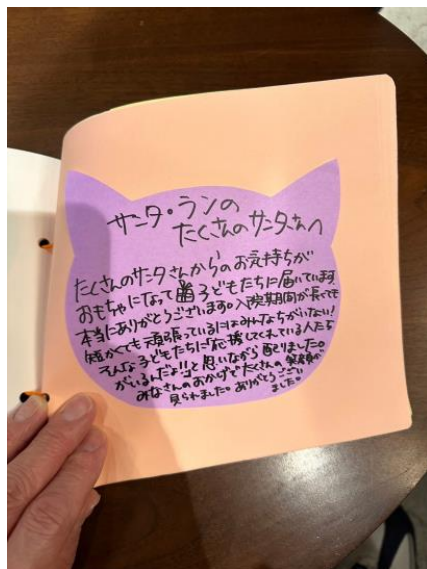 サンタ・ランの
たくさんのサンタさんへ
たくさんのサンタさんからのお気持ちが
おもちゃになって子どもたちに届いています。
本当にありがとうございます。入院期間が長くても
短かくても頑張っているにはみんなちがいない!
そんな子どもたちに「応援してくれている人たち
がいるんだよ!!」と思いながら配りました。
みなさんのおかげでたくさんの笑顔が
見られました。ありがとうござい
ました。